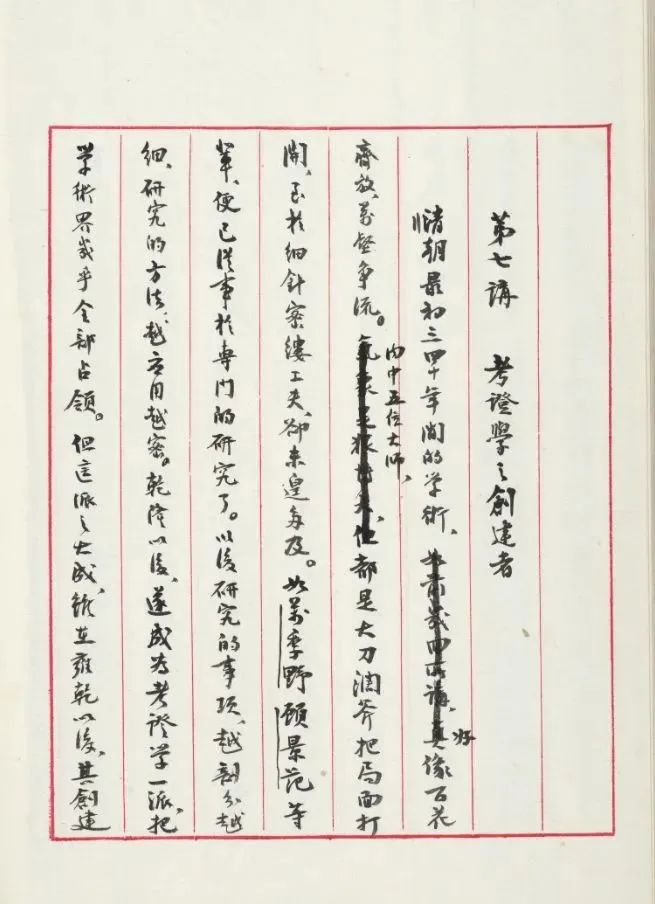 第七講　考證學之創建者
清朝最初三四十年間的學術、真好像百花
齊放、萬壑爭流。內中五位大師、都是大刀濶斧把局面打
開、至於細針密縷工夫、卻未遑多及。如萬季野顧景范等
輩、便已從事於專門的研究了。以後研究的事項、越剖分越
細、研究的方法、越應用越密。乾隆以後、遂成為考證學一派、把
學術界幾乎全部占領。但這派之大成、雖在雍乾以後、其創建